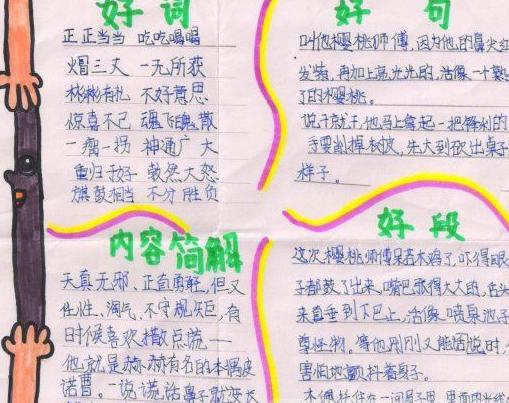 好词
正正当当 吃吃喝喝
火冒三丈 一无所获
彬彬有礼 不好意思
惊喜不已 魂飞魄散
一瘸一拐 神通广大
重归于好 勃然大怒
旗鼓相当 不分胜负
内容简解
天真无邪、正直勇敢,但又
任性、淘气、不守规矩,有
时候喜欢撒点谎——
他就是赫赫有名的木偶皮
诺曹。一说谎话鼻子就变大
好句
叫他樱桃师傅,因为他的鼻尖红
发紫,再加上亮光光的,活像一个
了的樱桃。
说干就干,他马上拿起一把锋利的
要削掉树皮,先大致砍出桌子
样子。
好段
这次樱桃师傅呆若木鸡了,吓得眼
子都鼓了出来,嘴巴张得大大的,舌头
来直垂到下巴上,活像喷泉池子
等他刚刚又能话说时,
害怕地颤抖着身子。